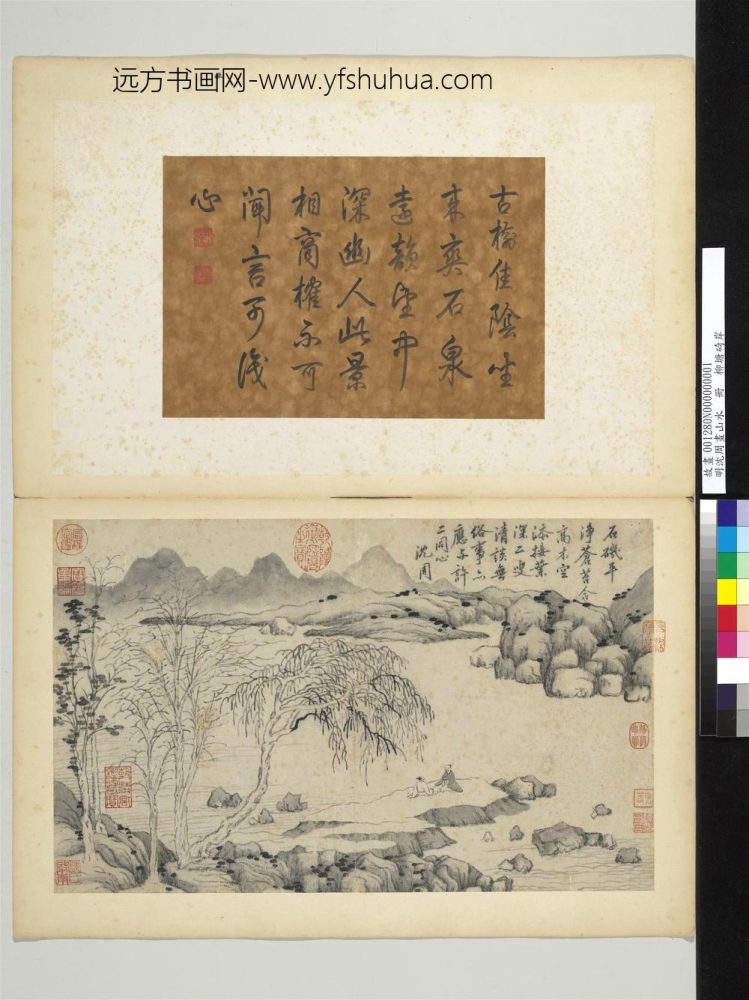 远方书画网-www.yfshuhua.com
古榆佳陰坐
来爽石泉
遠韻中
深幽人此景
相商榷不可
聞言可
心
石磯平
淨蒼苔合
高木空
添接葉
深二叟
清談無
俗事亦
應与許
二同心
沈周
故畫001280N000000001
明沈周畫山水 冊 柳塘碕岸